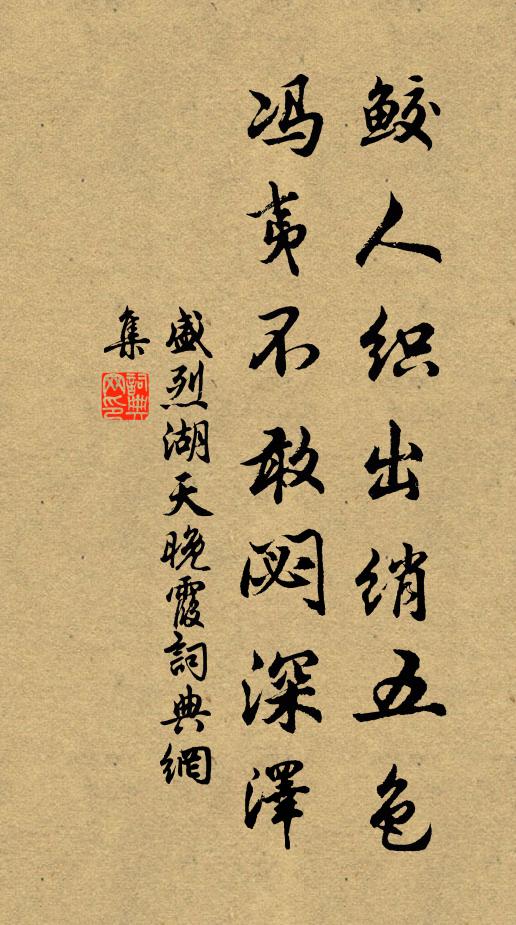 鲛人织出绡五色
冯夷不敢閟深澤
盛烈湖天晚霞詞典網
集
詞典網印